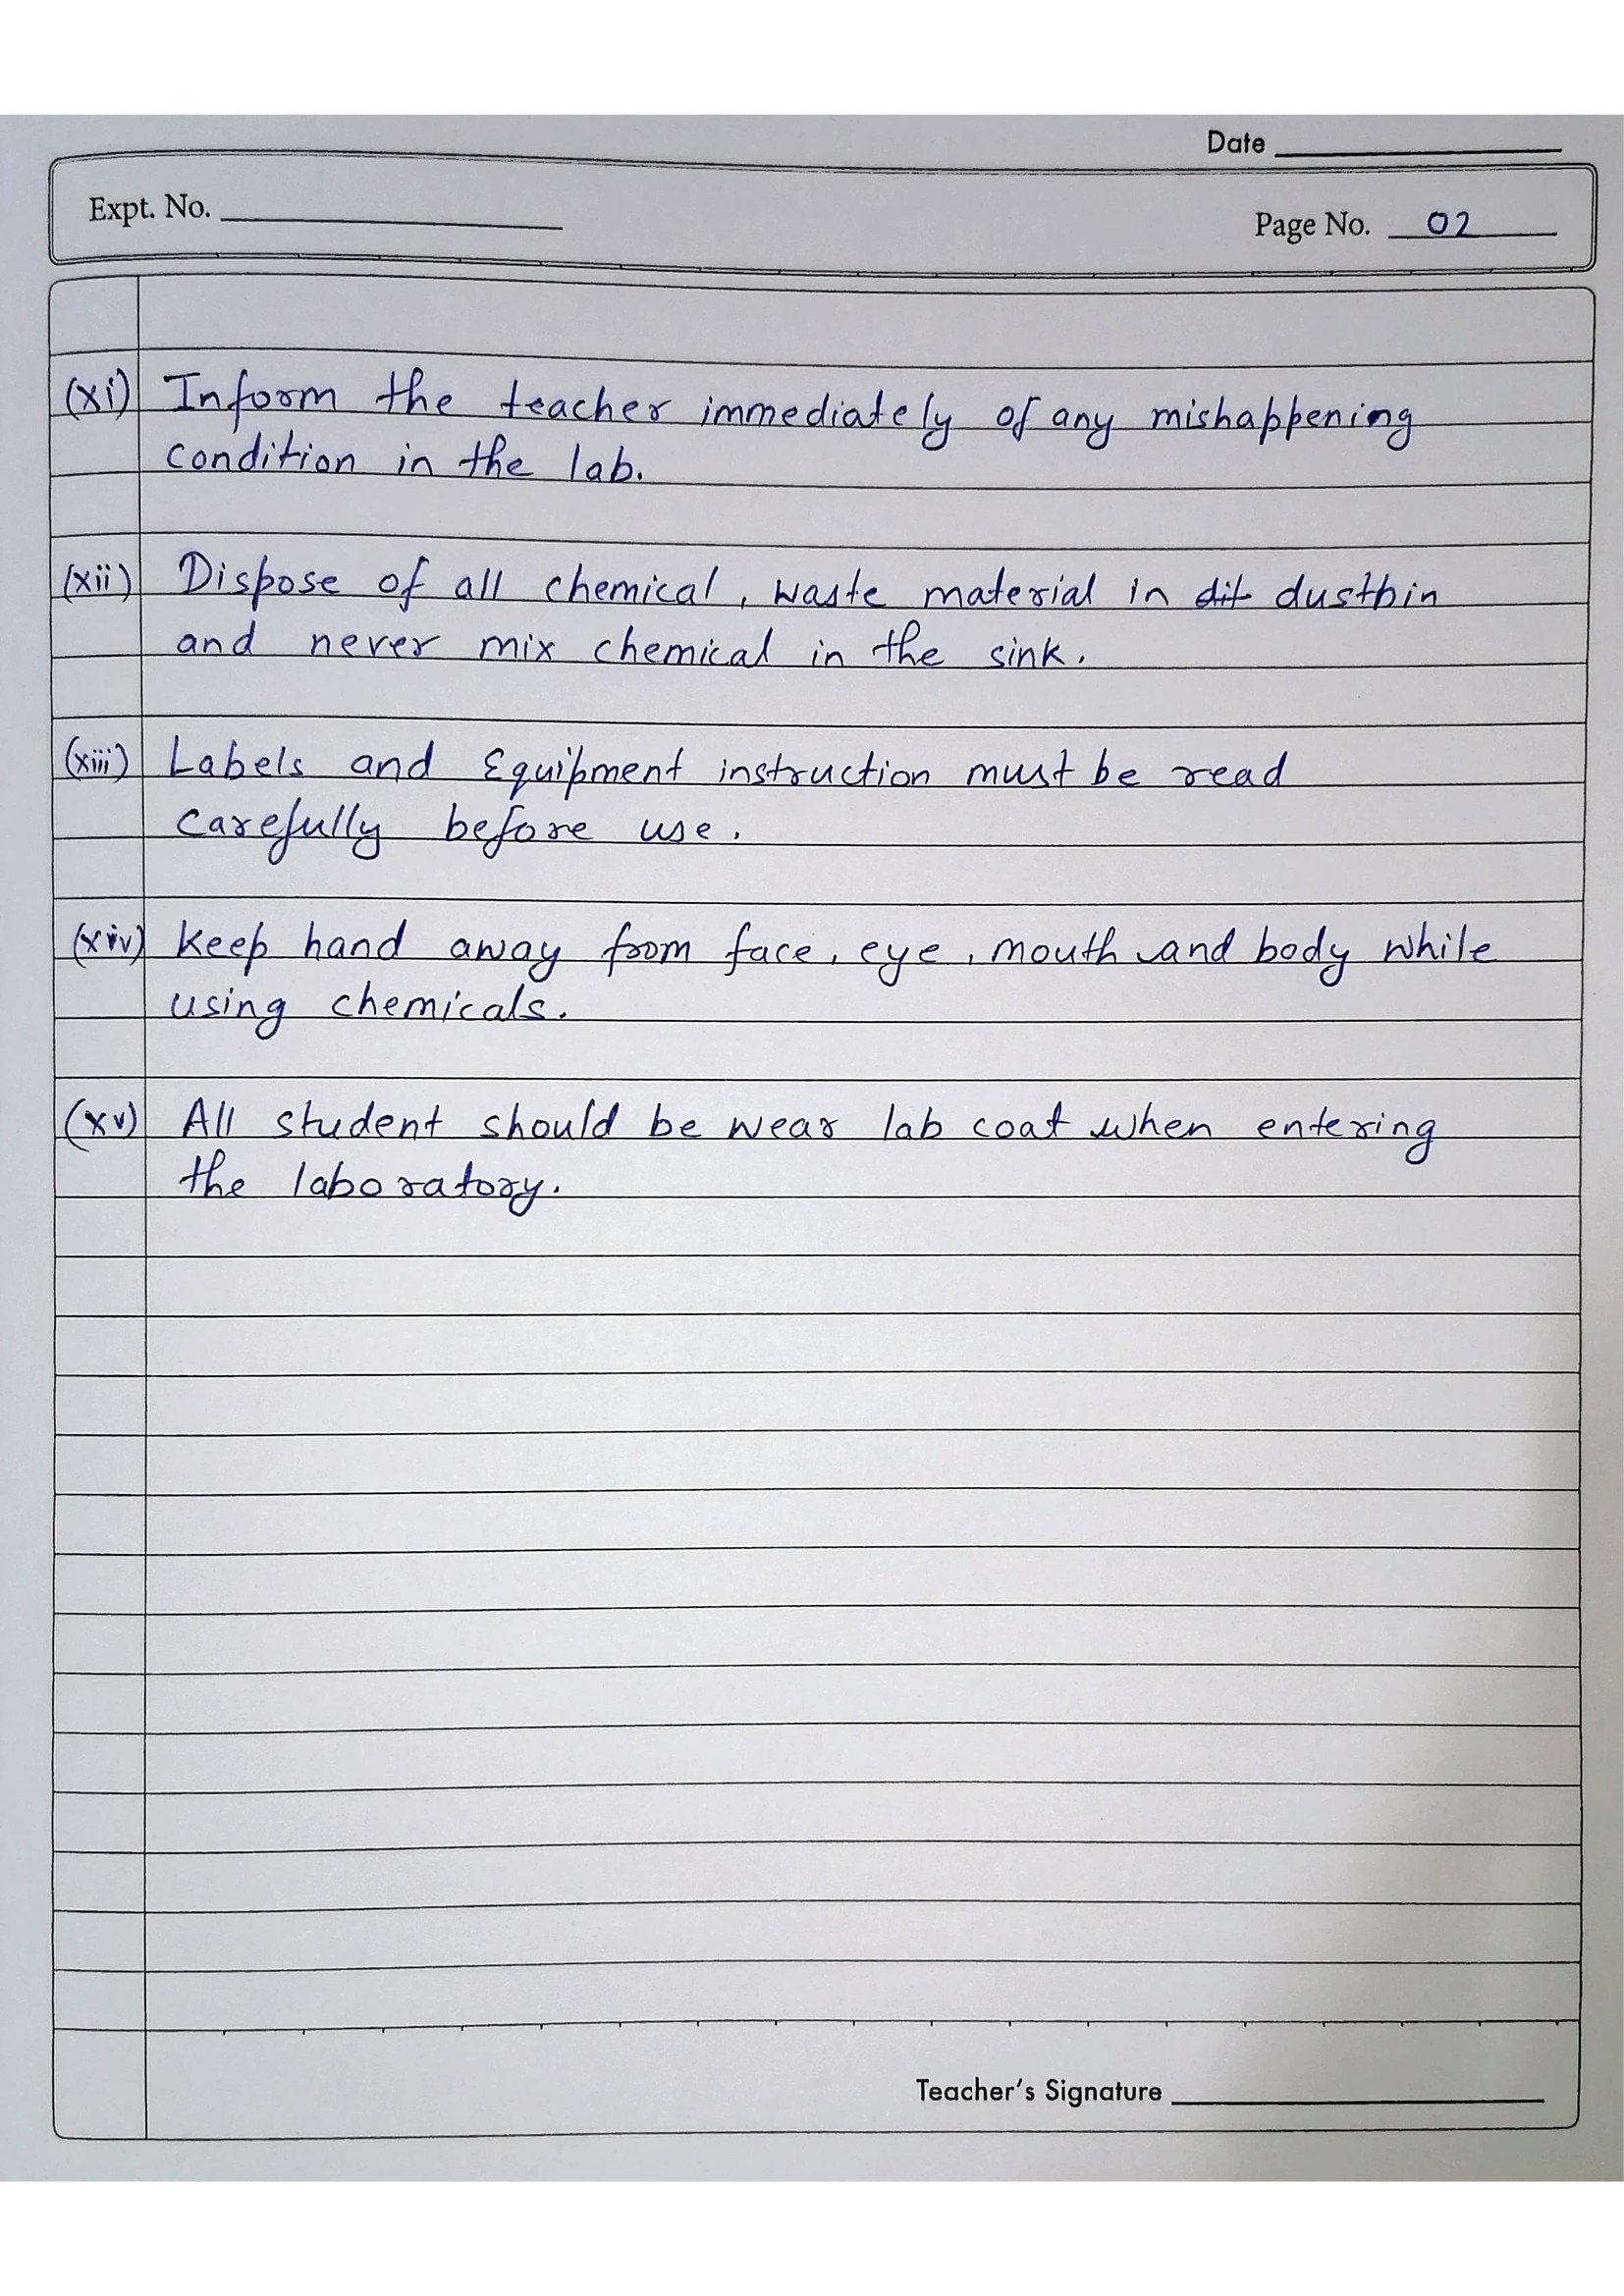 Date
Expt. No.
Page No. 02
(xi) Inform the teacher immediately of any mishappening
condition in the lab.
(xii) Dispose of all chemical, waste material in dit dustbin
and never mix chemical in the sink.
(xiii) Labels and Equipment instruction must be read
carefully before use.
(xiv) Keep hand away from face, eye, mouth and body while
using chemicals.
(xv) All student should be wear lab coat when entering
the laboratory.
Teacher's Signature